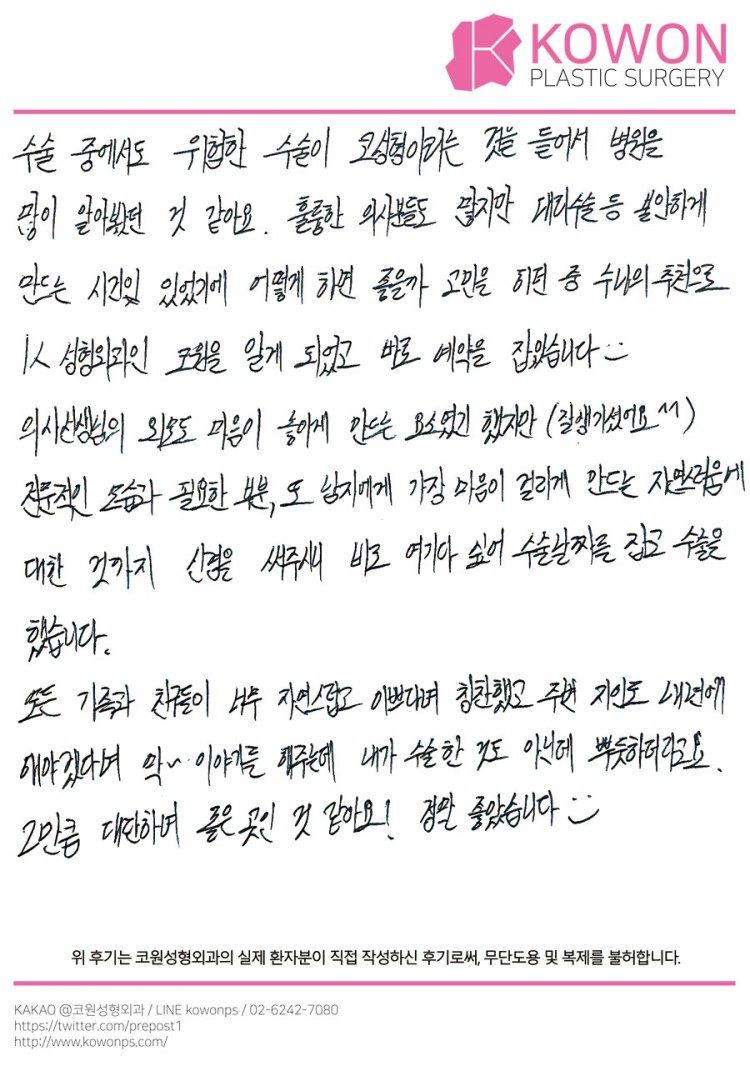 KOWON
PLASTIC SURGERY
수술 중에서도 위험한 수술이 코성형이라는 것을 들어서 병원을
많이 알아봤던 것 같아요. 훌륭한 의사분들도 많지만 대리수술 등 불안하게
만드는 시간이 있었기에 어떻게 하면 좋을까 고민을 하던 중 수나의 추천으로
1人 성형외과인 코원을 알게 되었고 바로 예약을 잡았습니다 :)
의사선생님의 외모도 마음이 놓이게 만드는 요소였긴 했지만 (잘생기셨어요^^)
전문적인 모습과 필요한 부분, 또 남자에게 가장 마음이 걸리게 만드는 자연스러움에
대한 것까지 신경을 써주시니 바로 여기다 싶어 수술날짜를 잡고 수술을
했습니다.
모든 가족과 친구들이 너무 자연스럽고 이쁘다며 칭찬했고 주변 지인도 내년에
해야겠다며 막~ 이야기를 해주는데 내가 수술한 것도 아닌데 뿌듯하더라고요.
그만큼 대단하며 좋은 곳인 것 같아요! 정말 좋았습니다 :)
위 후기는 코원성형외과의 실제 환자분이 직접 작성하신 후기로써, 무단도용 및 복제를 불허합니다.
KAKAO @코원성형외과 / LINE kowonps / 02-6242-7080
https://twitter.com/prepost1
http://www.kowonps.com/